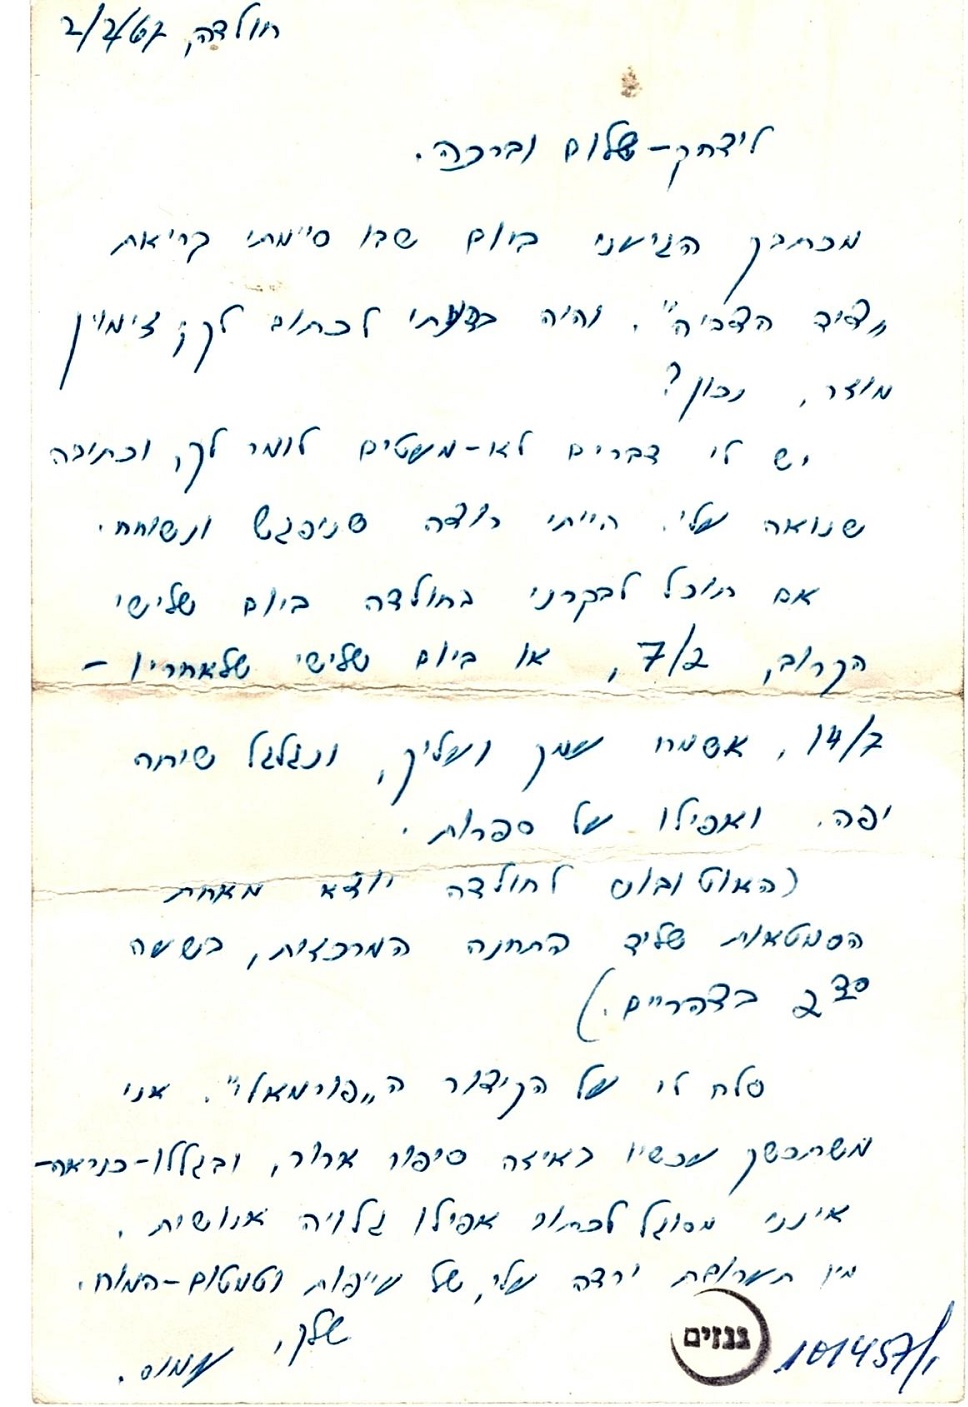 חולדה, 2/2/67
ליצחק – שלום וברכה.
מכתבך הגיעני ביום שבו סיימתי קריאת
„ציד הצביה". והיה בדעתי לכתוב לך; זימוין
מוזר, נכון?
יש לי דברים לא-מעטים לומר לך, וכתיבה
שנואה עלי. הייתי רוצה שניפגש ונשוחח.
אם תוכל לבקרני בחולדה ביום שלישי
הקרוב, 7/2, או ביום שלישי שלאחריו –
14/2, אשמח עמך ועליך, ונגלגל שיחה
יפה. ואפילו על ספרות.
(האוטובוס לחולדה יוצא מאחת
הסמטאות שליד התחנה המרכזית, בשעה
2 בצהריים.)
סלח לי על הקיצור ה„פורמאלי". אני
משתכשך עכשיו באיזה סיפור ארור, ובגללו-כנראה-
אינני מסוגל לכתוב אפילו גלויה אנושית.
מין תערובת ירדה עלי, של עייפות וטמטום-המוח.
שלך,
עמוס.
גנזים
101457/1